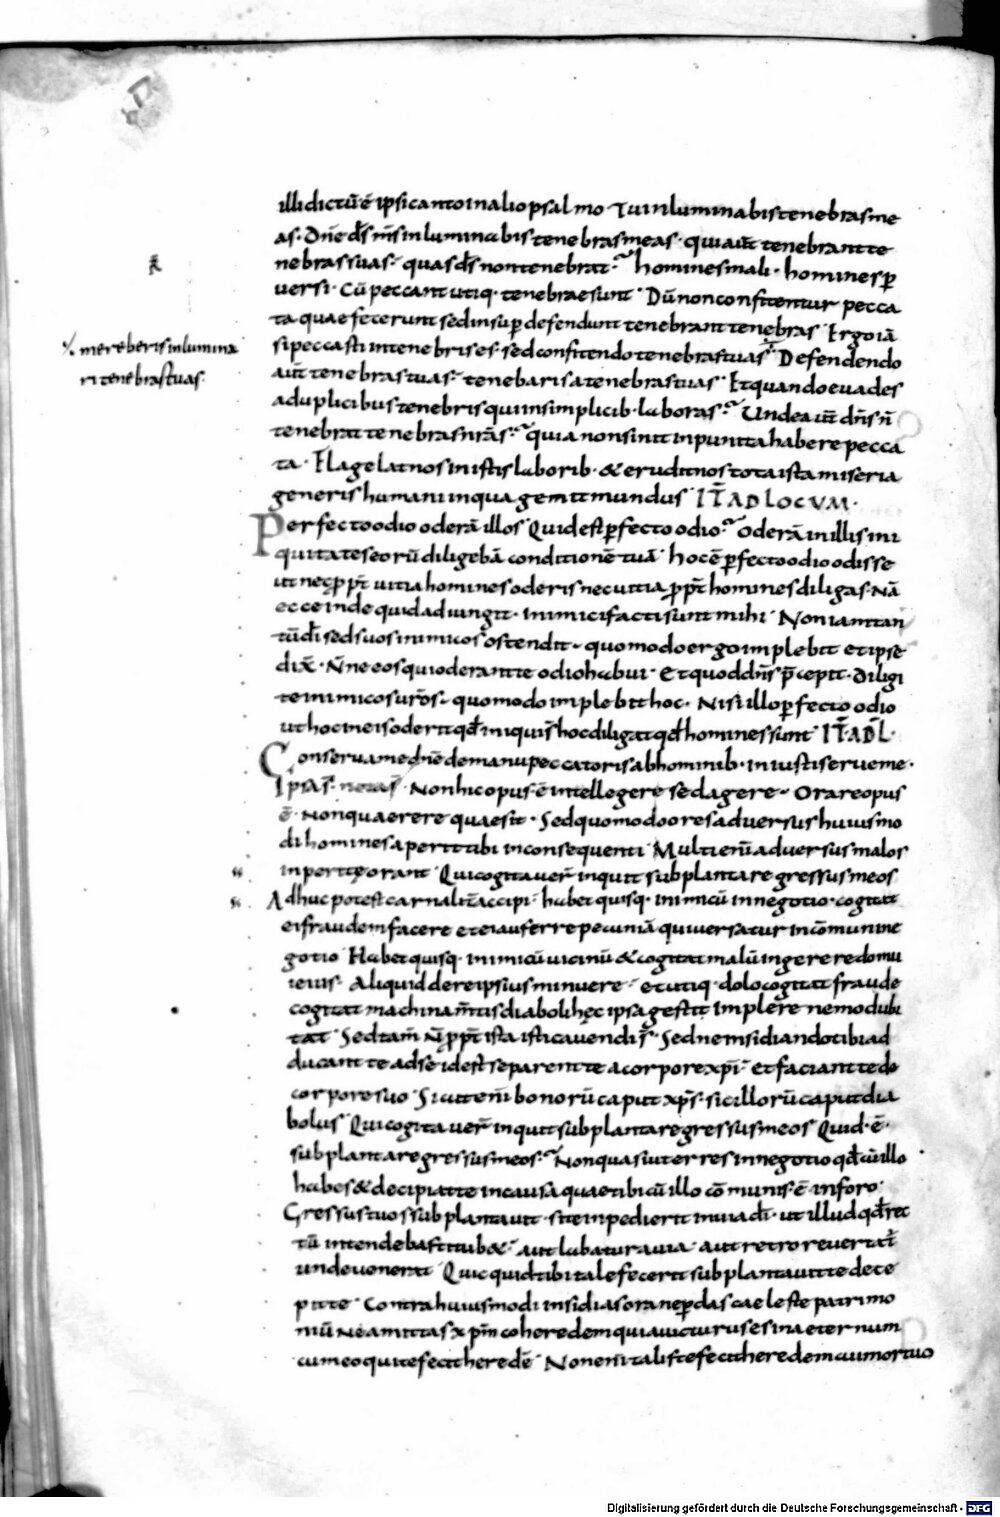 illi dictū ē ipsi canto in alio psalmo Tu inluminabis tenebras me
as· Dn̄e ds̄ ms̄ inluminabis tenebras meas· qui aūt tenebrant te
nebras suas· quas ds̄ non tenebrat· homines mali· homines ꝑ
versi· Cū peccant utiq· tenebrae sunt· Dū non confitentur pecca
ta quae fecerunt sed insuꝑ defendunt tenebrant tenebras· Ergo iā
si peccasti in tenebris es· sed confitendo tenebras tuas· Defendendo
⁒ mereberis inlumina
ri tenebras tuas·
aūt tenebras tuas· tenebaris a tenebras tuas· Et quando evades
a duplicibus tenebris qui in simplicib· laboras· Unde aūt dn̄s n̄
tenebrat tenebras nr̄as· quia non sinit inpunita habere pecca
ta· Flagelat nos in istis laborib· & erudit nos tota ista miseria
generis humani in qua gemit mundus· IT̄ AD LOCUM·
Perfecto odio oderā illos Quid est ꝑfecto odio· Oderā in illis ini
quitates eorū diligebā conditionē tuā· hoc ē ꝑfecto odio odisse
ut nec ꝓpt̄ vitia homines oderis nec vitia ꝓpt̄ homines diligas· Nā
ecce inde quid adiungit· inimici facti sunt mihi· Non iam tan
tū dī sed suos inimicos ostendit· quomodo ergo implebit et ipse
dix̄· Nn̄e eos qui oderant te odio habui· Et quod dn̄s p̄cepit· Diligi
te inimicos vr̄os· quomodo implebit hoc· Nisi illo ꝑfecto odio
ut hoc in eis oderit qđ iniqui s̄ hoc diligat qđ homines sunt· IT̄ AD L̄·
Conserva me dn̄e de manu peccatoris ab hominib· iniustis erue me·
Ipsas notas· Non hic opus ē intellegere sed agere· Orare opus
ē· Non quaerere quae sit· Sed quomodo ores adversus huiusmo
di homines aperit tibi in consequenti Multi enī adversus malos
inperite orant· Qui cogitaver̄ inquit subplantare gressus meos
Adhuc potest carnalit̄ accipi· habet quisq· inimicū in negotio· cogitat
ei fraudem facere et ei auferre pecuniā qui versatur in cōmuni ne
gotio· Habet quisq· inimicū vicinū & cogitat malū ingerere domu
i eius· Aliquid de re ipsius minuere· et utiq· dolo cogitat fraude
cogitat machinam̄tis diaboli hęc ipsa gestit implere nemo dubi
tat· Sed tam̄ n̄ ꝓpt̄ ista isti cavendi s̄· Sed ne insidiando tibi ad
ducant te ad se id est separent te a corpore xp̄i· et faciant te de
corpore suo· Sicut enī bonorū caput xp̄s· sic illorū caput dia
bolus· Qui cogitaver̄ inquit subplantare gressus meos· Quid· ē·
subplantare gressus meos· Non quasi ut erres in negotio qđ cū illo
habes & decipiat te in causa quae tibi cū illo cōmunis· ē· in foro·
Gressus tuos subplantavit· si te inpedierit in via dī· ut illud qđ rec
tū intendebas titub&· aut labatur a via· aut retro revertat̄
unde venerat· Quicquid tibi tale fecerit subplantavit te dece
pit te· Contra huiusmodi insidias ora ne perdas caeleste patrimo
niū Ne amittas xp̄m coheredem quia victurus es in aeternum
cum eo qui te fecit heredē· Non enī talis te fecit heredem cui mortuo